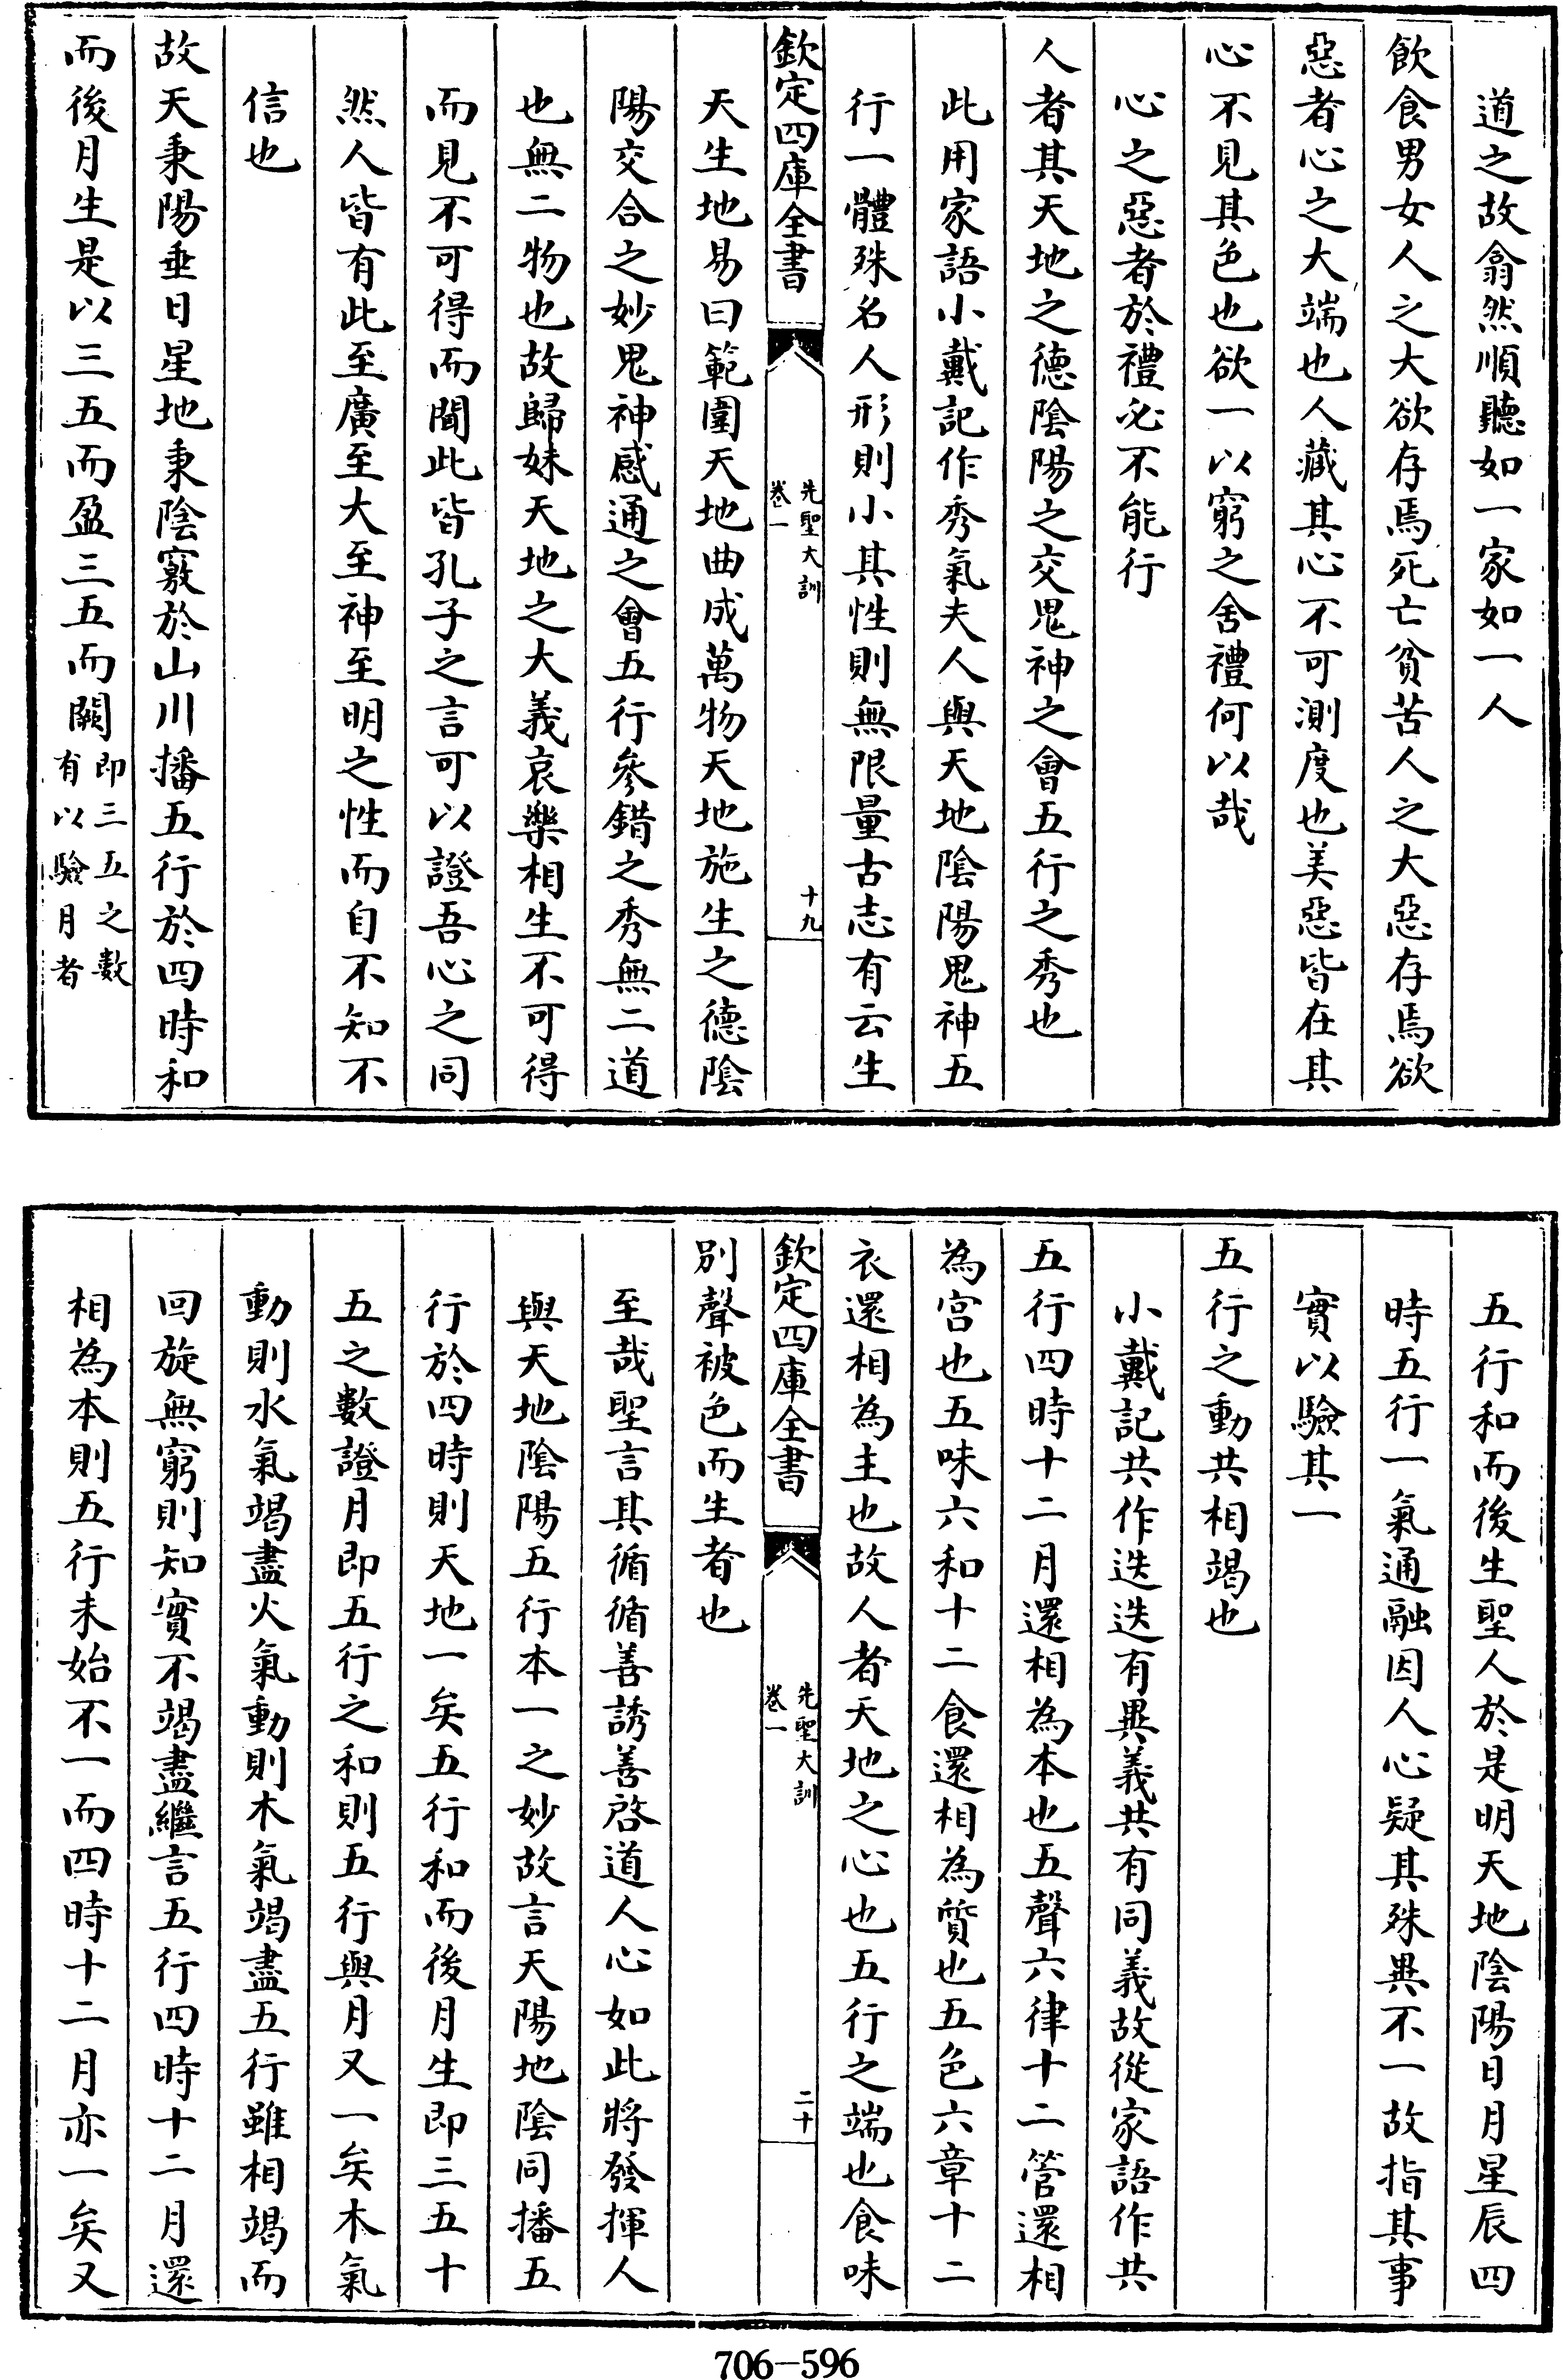 道之故翕然順聽如一家如一人
飲食男女人之大欲存焉死亡貧苦人之大惡存焉欲
惡者心之大端也人藏其心不可測度也美惡皆在其
心不見其色也欲一以窮之舍禮何以哉
心之惡者於禮必不能行
人者其天地之德陰陽之交鬼神之會五行之秀也
此用家語小戴記作秀氣夫人與天地陰陽鬼神五
行一體殊名人形則小其性則無限量古志有云生
欽定四庫全書
先聖大訓
卷一
十九
天生地易曰範圍天地曲成萬物天地施生之德陰
陽交合之妙鬼神感通之會五行參錯之秀無二道
也無二物也故歸妹天地之大義哀樂相生不可得
而見不可得而聞此皆孔子之言可以證吾心之同
然人皆有此至廣至大至神至明之性而自不知不
信也
故天秉陽垂日星地秉陰竅於山川播五行於四時和
而後月生是以三五而盈三五而闕
即三五之數
有以驗月者
五行和而後生聖人於是明天地陰陽日月星辰四
時五行一氣通融因人心疑其殊異不一故指其事
實以驗其一
五行之動共相竭也
小戴記共作迭迭有異義共有同義故從家語作共
五行四時十二月還相為本也五聲六律十二管還相
為宮也五味六和十二食還相為質也五色六章十二
衣還相為主也故人者天地之心也五行之端也食味
欽定四庫全書
先聖大訓
卷一
二十
別聲被色而生者也
至哉聖言其循循善誘善啓道人心如此將發揮人
與天地陰陽五行本一之妙故言天陽地陰同播五
行於四時則天地一矣五行和而後月生即三五十
五之數證月即五行之和則五行與月又一矣木氣
動則水氣竭盡火氣動則木氣竭盡五行雖相竭而
回旋無窮則知實不竭盡繼言五行四時十二月還
相為本則五行未始不一而四時十二月亦一矣又
706-596